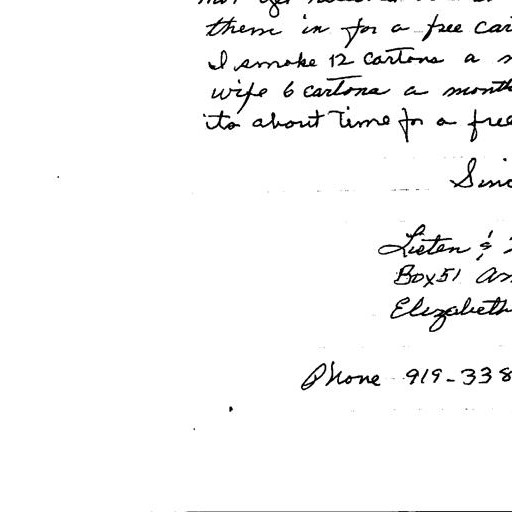 them in for a free car
I smoke 12 cartons a
wife 6 cartons a month
its about Time for a free
Sinc
&
Box 51
Elizabeth
Phone 919-338